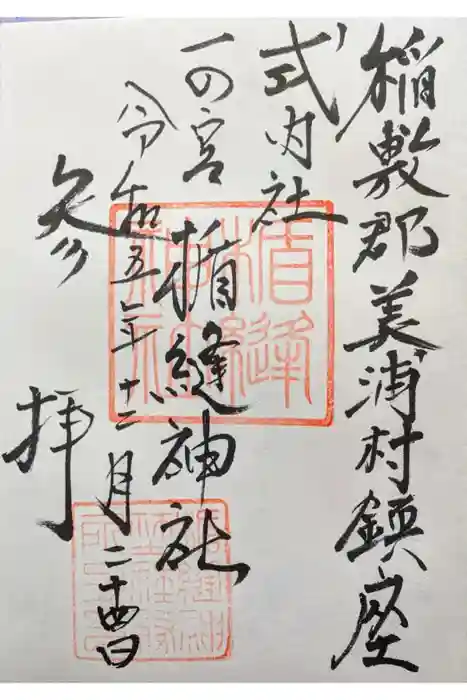 稲敷郡美浦村鎮座
式内社
一の宮 楯縫神社
令和五年十二月二十四日
参拝
楯縫神社